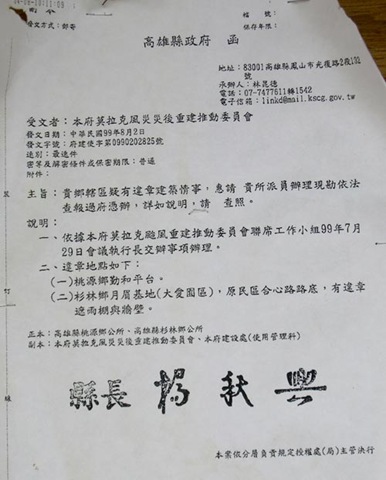 發文方式:郵寄
檔 號:
保存年限:
高雄縣政府 函
地址:83001高雄縣鳳山市光復路2段132號
承辦人:林昆德
電話:07-7477611轉1542
電子信箱:linkd@mail.kscg.gov.tw
受文者:本府莫拉克風災災後重建推動委員會
發文日期:中華民國99年8月2日
發文字號:府建使字第0990202825號
速別:最速件
密等及解密條件或保密期限:普通
附件:
主旨:貴鄉轄區疑有違章建築情事,惠請 貴所派員辦理現勘依法
查報過府憑辦,詳如說明,請 查照。
說明:
一、依據本府莫拉克颱風重建推動委員會聯席工作小組99年7月
29日會議執行長交辦事項辦理。
二、違章地點如下:
(一)桃源鄉勤和平台。
(二)杉林鄉月眉基地(大愛園區),原民區合心路路底,有違章
遮雨棚與牆壁。
正本:高雄縣桃源鄉公所、高雄縣杉林鄉公所
副本:本府莫拉克風災災後重建推動委員會、本府建設處(使用管理科)
縣長 楊秋興
本案依分層負責規定授權處(局)主管決行